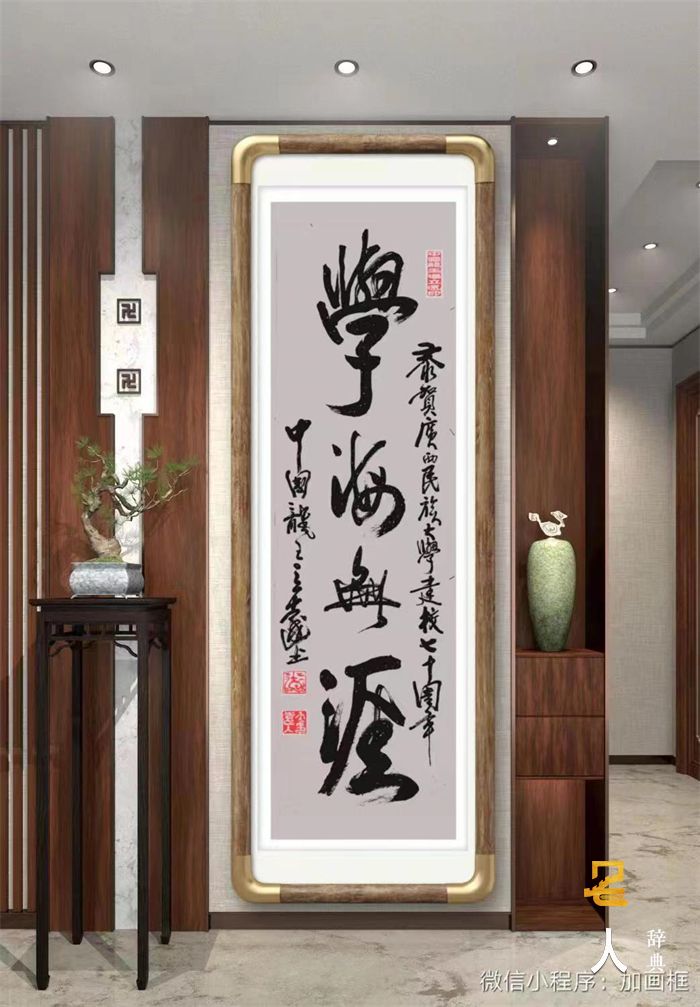 學海無涯
恭賀廣西民族大學建校七十周年
中國龍
卍
卍
人
辞典
微信小程序：加画框